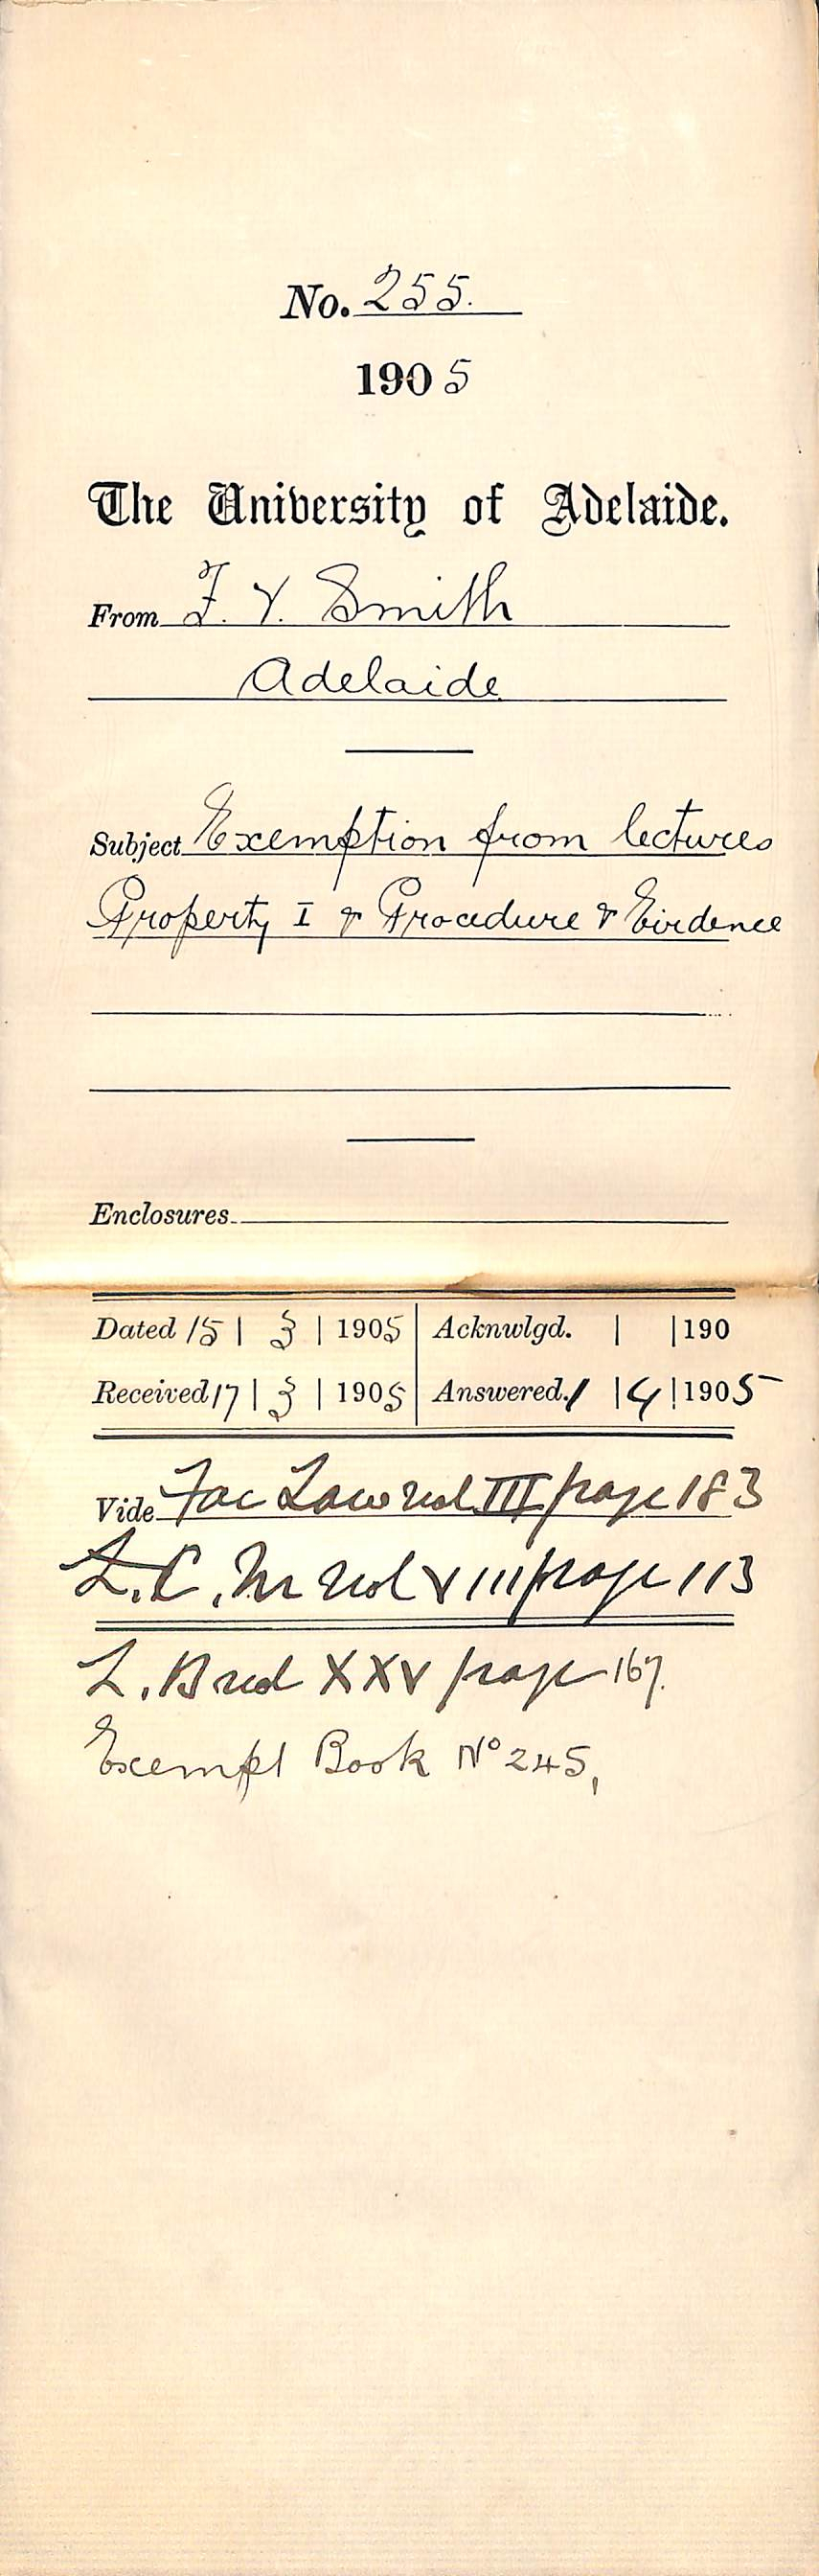 No. 255.
1905
The University of Adelaide.
From F. V. Smith
Adelaide
Subject Exemption from lectures
Property I & Procedure & Evidence
Enclosures
Dated 15 | 3 | 1905 | Acknwlgd. | | 190
Received 17 | 3 | 1905 | Answered. 1 | 4 | 1905
Vide Fac Law vol III page 183
vol VIII page 113
L. B vol XXV page 167.
Exempt Book No 245,